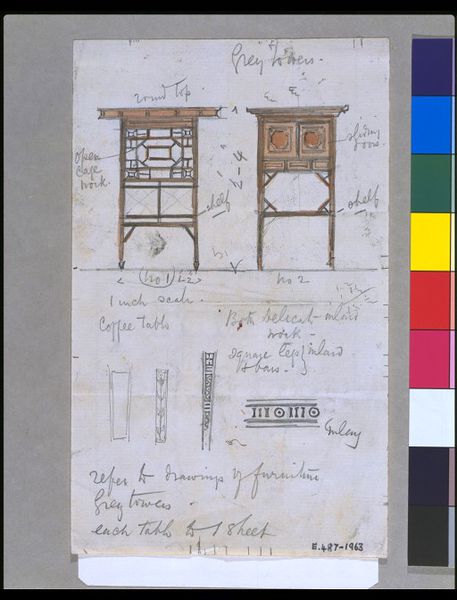 Grey towers.
round top
open
cage
work
sliding
doors.
shelf
shelf
2-4
(No 1)
No 2
1 inch scale.
Coffee Table
Both delicate inlaid
work -
square legs } inlaid
& bars.
Inlay
refer to drawings of furniture
Grey towers.
each table to 1 sheet
E.487-1963